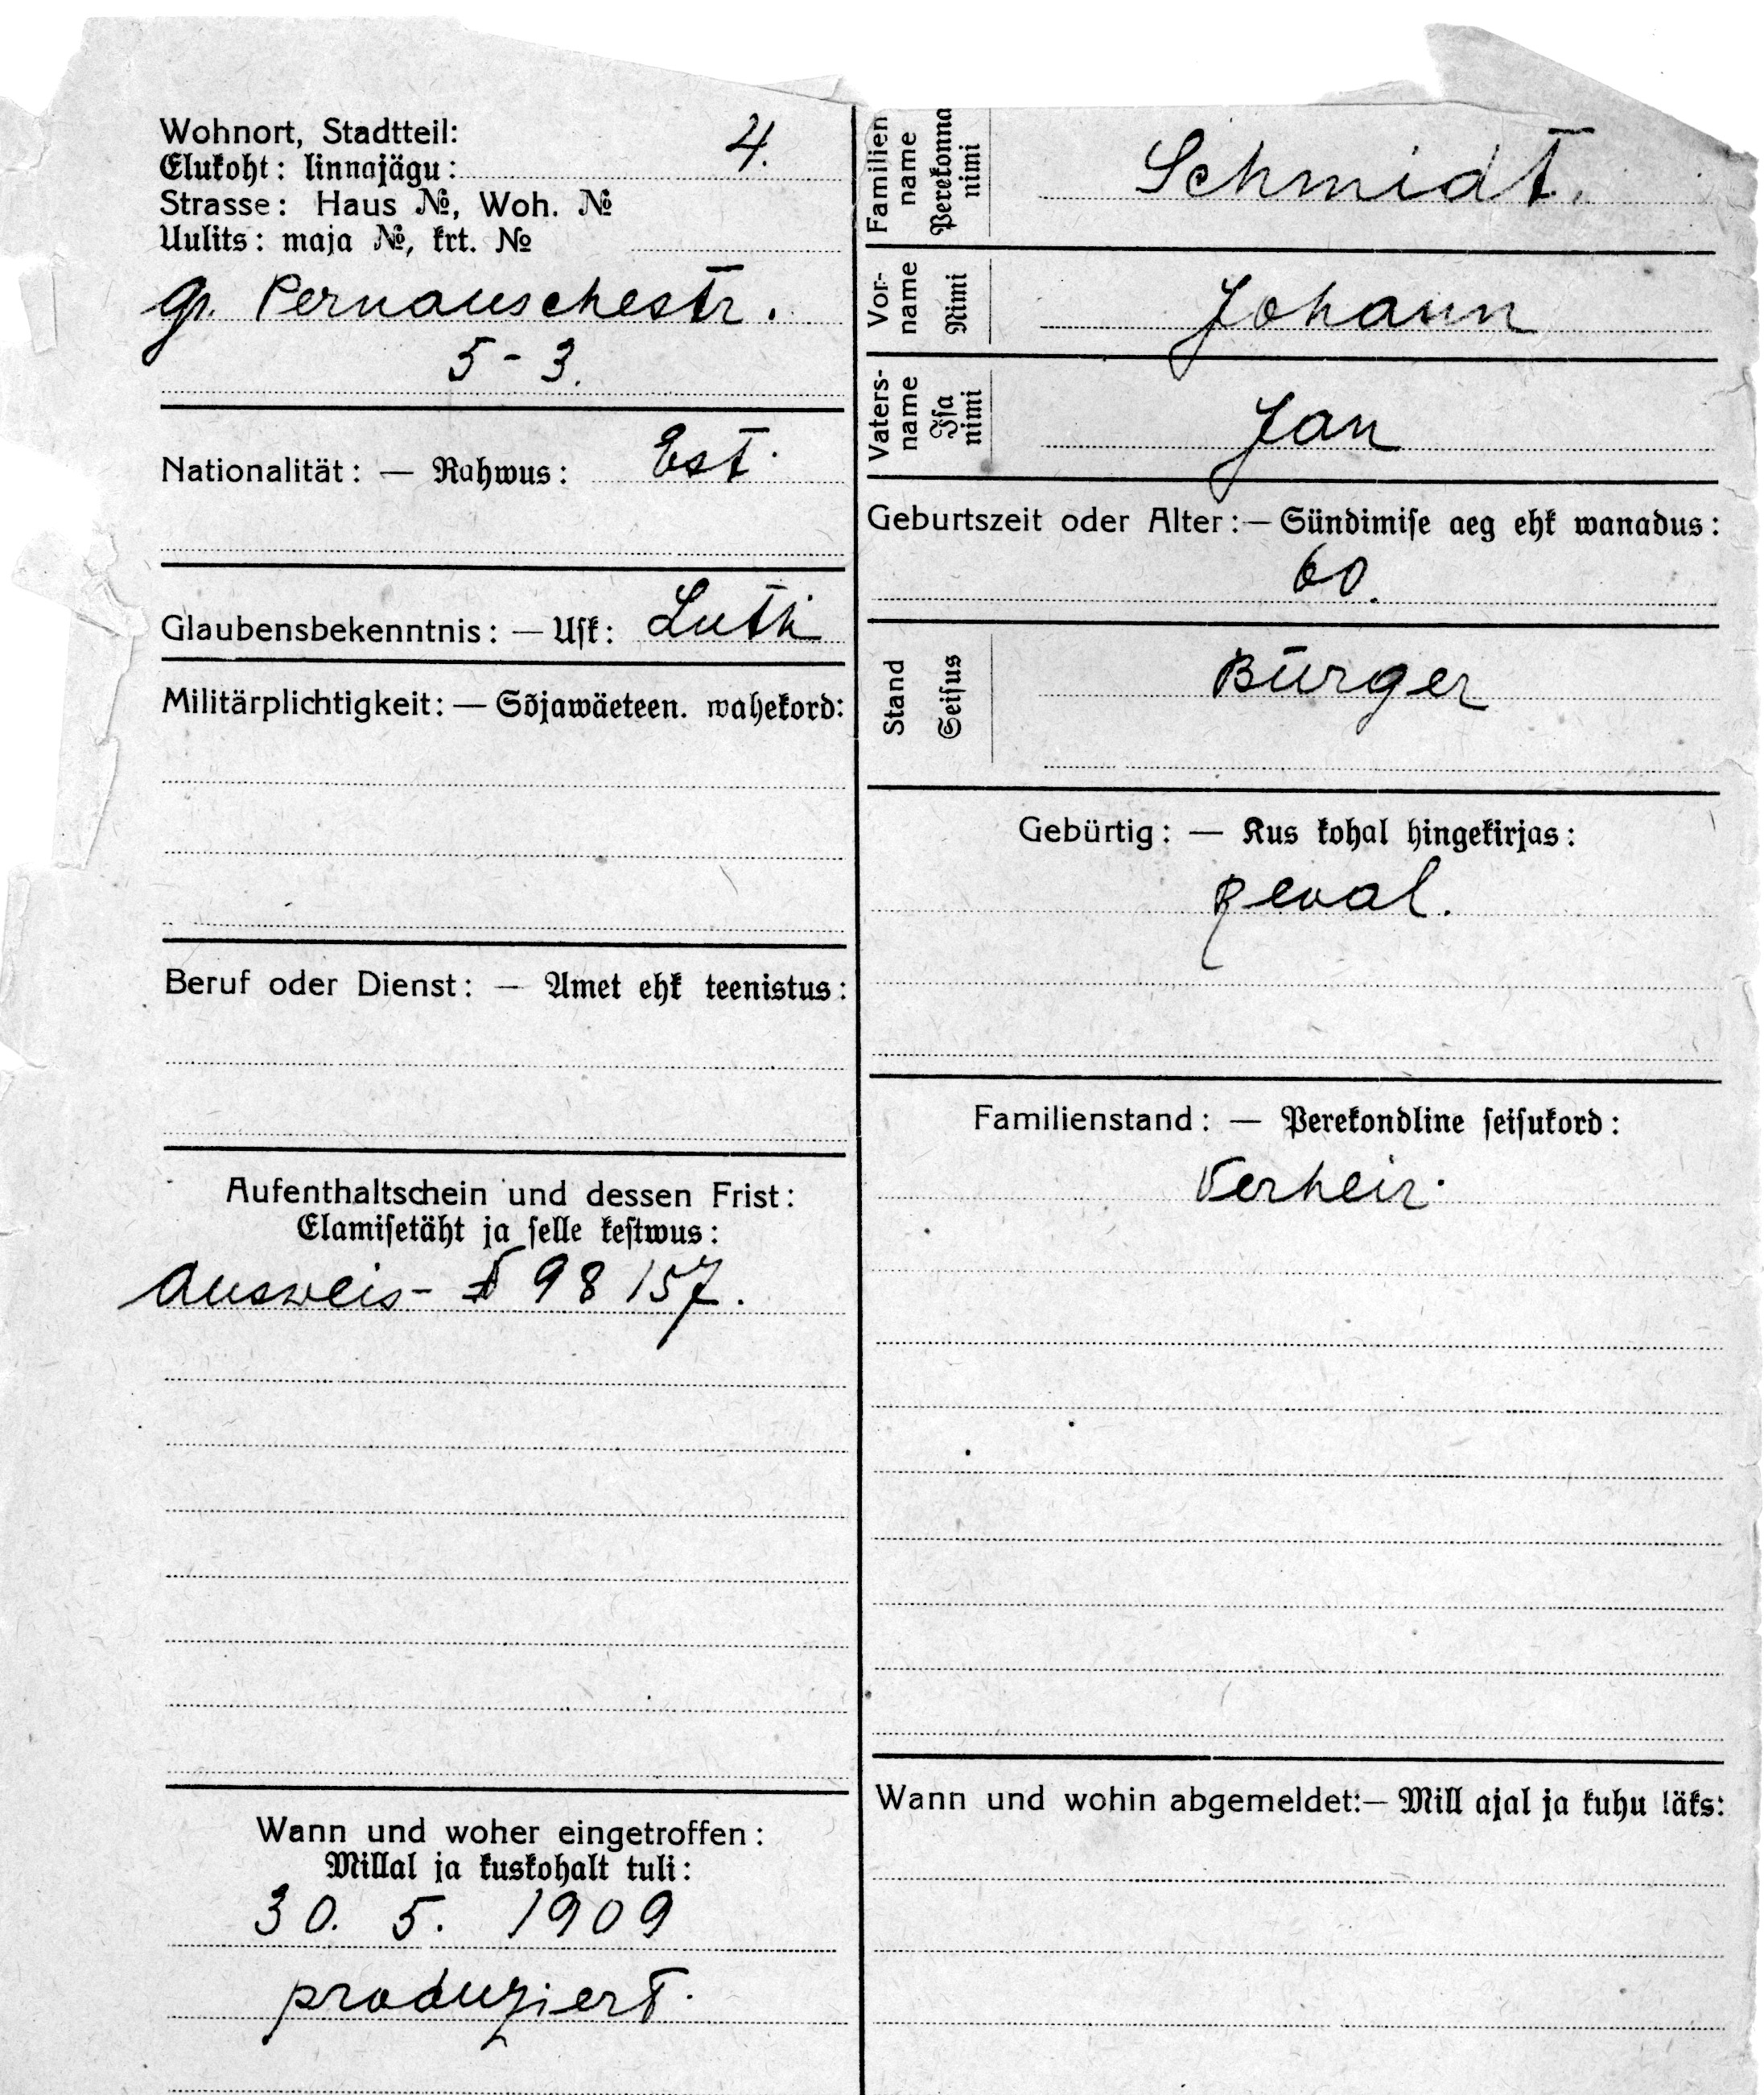 Wohnort, Stadtteil:
Elukoht: linnajägu: 4.
Strasse: Haus №, Woh. №
Uulits: maja №, krt. №
gr. Pernauschestr.
5-3.
Nationalität: — Rahwus: Est.
Glaubensbekenntnis: — Usk: Luth
Militärplichtigkeit: — Sõjawäeteen. wahekord:
Beruf oder Dienst: — Amet ehk teenistus:
Aufenthaltschein und dessen Frist:
Elamisetäht ja selle kestwus:
Ausweis- № 98157.
Wann und woher eingetroffen:
Millal ja kuskohalt tuli:
30. 5. 1909
produziert.
Familien
name
Perekonna
nimi
Schmidt.
Vor-
name
Nimi
Johann
Vaters-
name
Isa
nimi
Jan
Geburtszeit oder Alter: — Sündimise aeg ehk wanadus:
60.
Stand
Seisus
Bürger
Gebürtig: — Kus kohal hingekirjas:
Reval.
Familienstand: — Perekondline seisukord:
Verheir.
Wann und wohin abgemeldet: — Mill ajal ja kuhu läks: